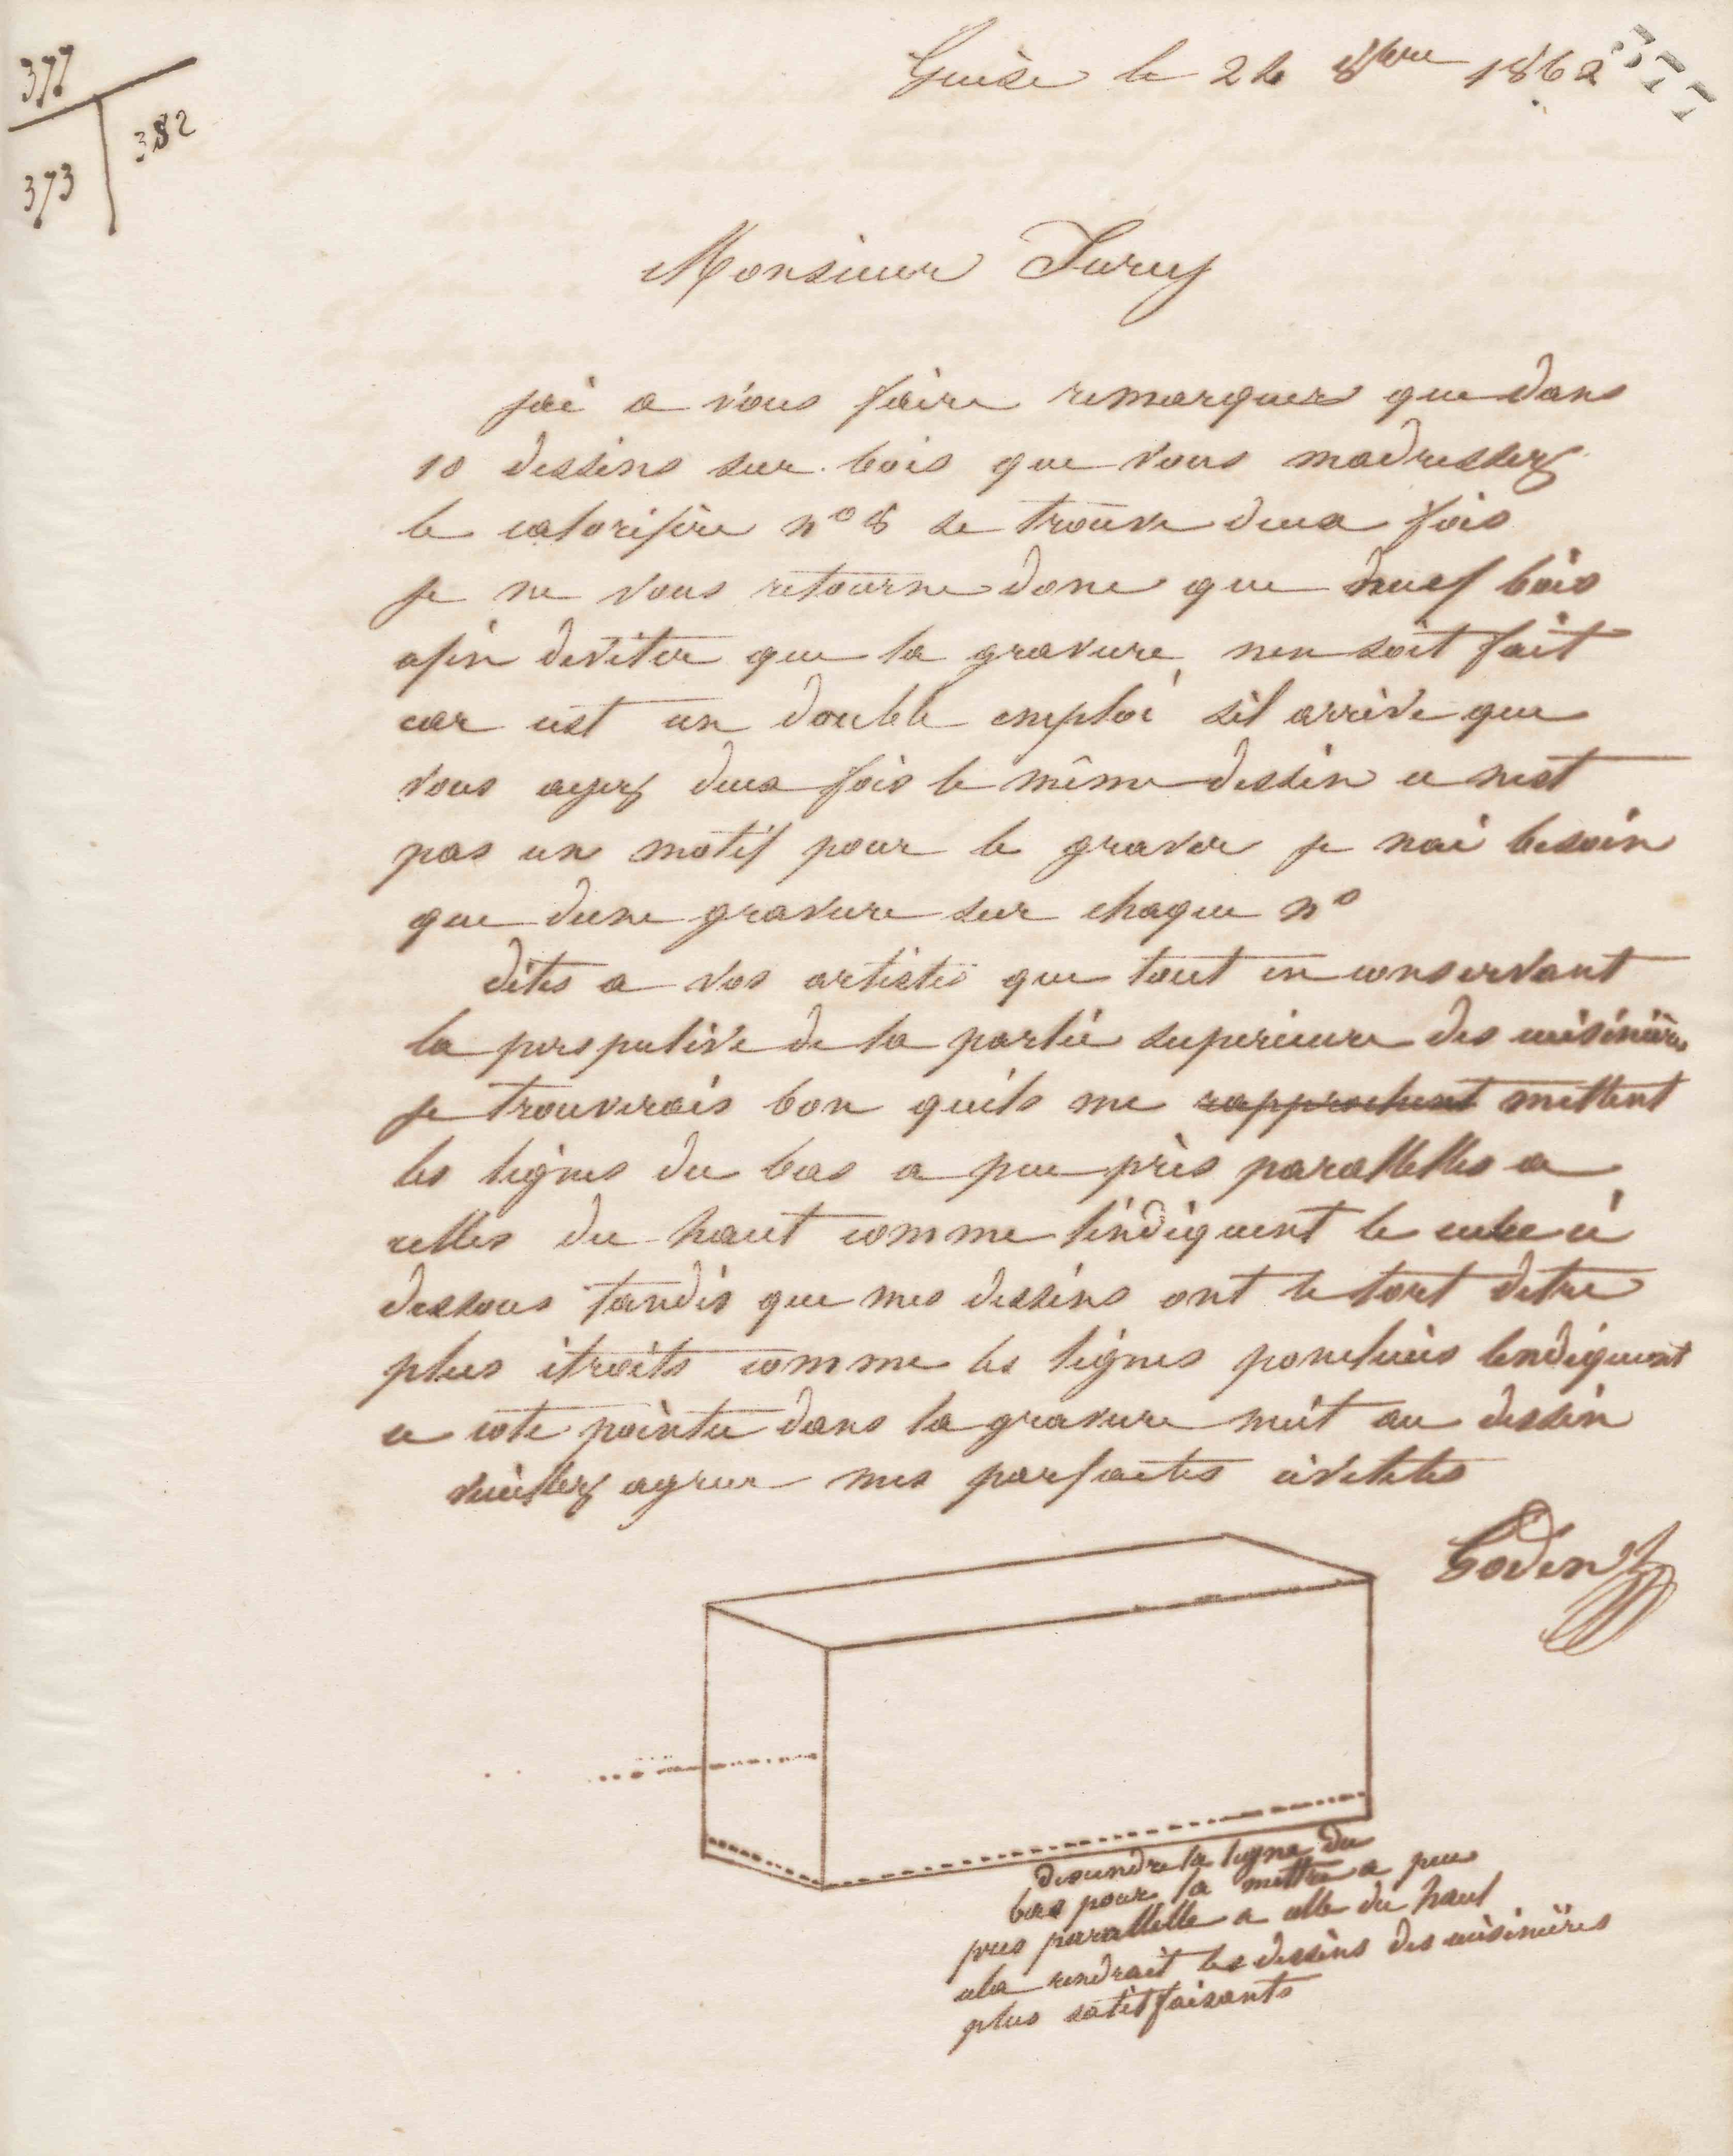 377
373
382
Guise le 24 8bre 1862
377
Monsieur Jurny
jai a vous faire remarquer que dans
10 dessins sur bois que vous madressez
le calorifère n° 8 se trouve deux fois
je ne vous retourne donc que neuf bois
afin deviter que la gravure nen soit fait
car cest un double emploi sil arrive que
vous ayez deux fois le même dessin ce nest
pas un motif pour le graver je nai besoin
que dune gravure sur chaque n°
dites a vos artistes que tout en conservant
la perspective de la partie superieure des cuisinières
je trouverais bon quils me rapprochent mettent
les lignes du bas a peu près paralelles a
celles du haut comme lindiquent le cube ci
dessous tandis que mes dessins ont le tort detre
plus étroits comme les lignes ponctuées lendiquent
ce coté pointu dans la gravure nuit au dessin
veuillez agreer mes parfaites civilités
Godin
descendre la ligne du
bas pour la mettre a peu
pres paralelle a celle du haut
cela rendrait les dessins des cuisinières
plus satisfaisants